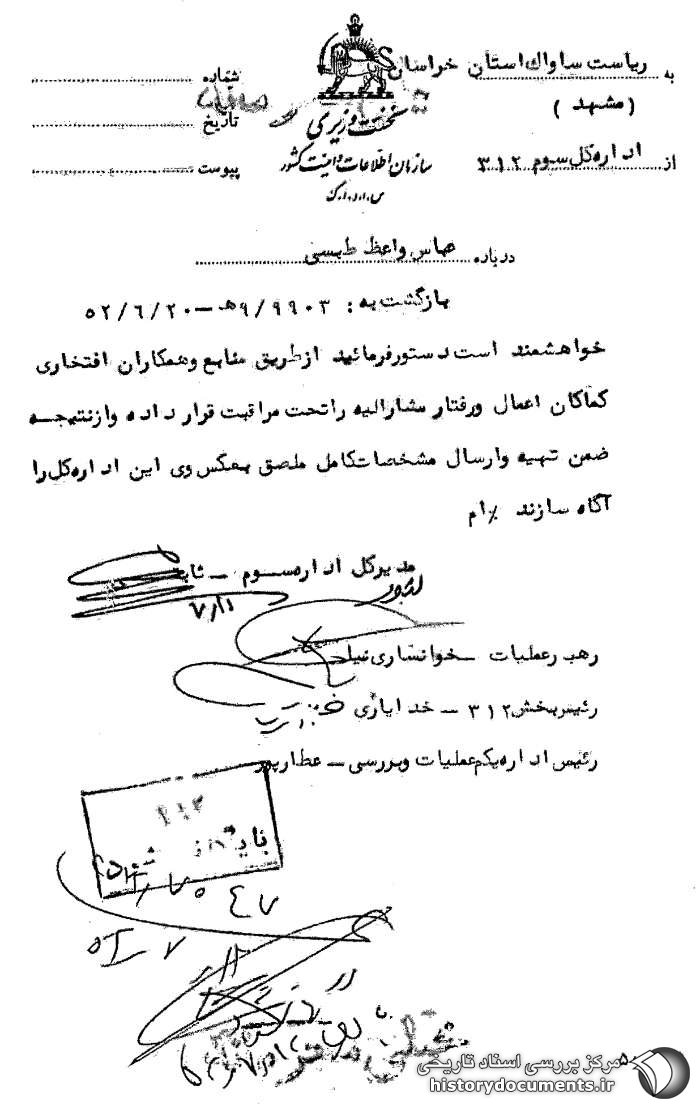 به ریاست ساواک استان خراسان
( مشهد )
از اداره کل سوم ۳۱۲
نخست وزیری
سازمان اطلاعات و امنیت کشور
س.ا.و.ا.ک
شماره
تاریخ
پیوست
درباره عباس واعظ طبسی
بازگشت به : ۹/۹۹۰۳ هـ – ۵۲/۶/۲۰
خواهشمند است دستور فرمائید از طریق منابع و همکاران افتخاری
کماکان اعمال و رفتار مشارالیه را تحت مراقبت قرار داده و از نتیجه
ضمن تهیه و ارسال مشخصات کامل ملصق بعکس وی این اداره کل را
آگاه سازند ٪ام
مدیرکل اداره سوم –
۷/۱۱
رهبر عملیات – خوانساری نیا
رئیس بخش ۳۱۲ – خدایاری
رئیس اداره یکم عملیات و بررسی – عطارپور
۳۱۲
بایگانی شود
مرکز بررسی اسناد تاریخی
historydocuments.ir